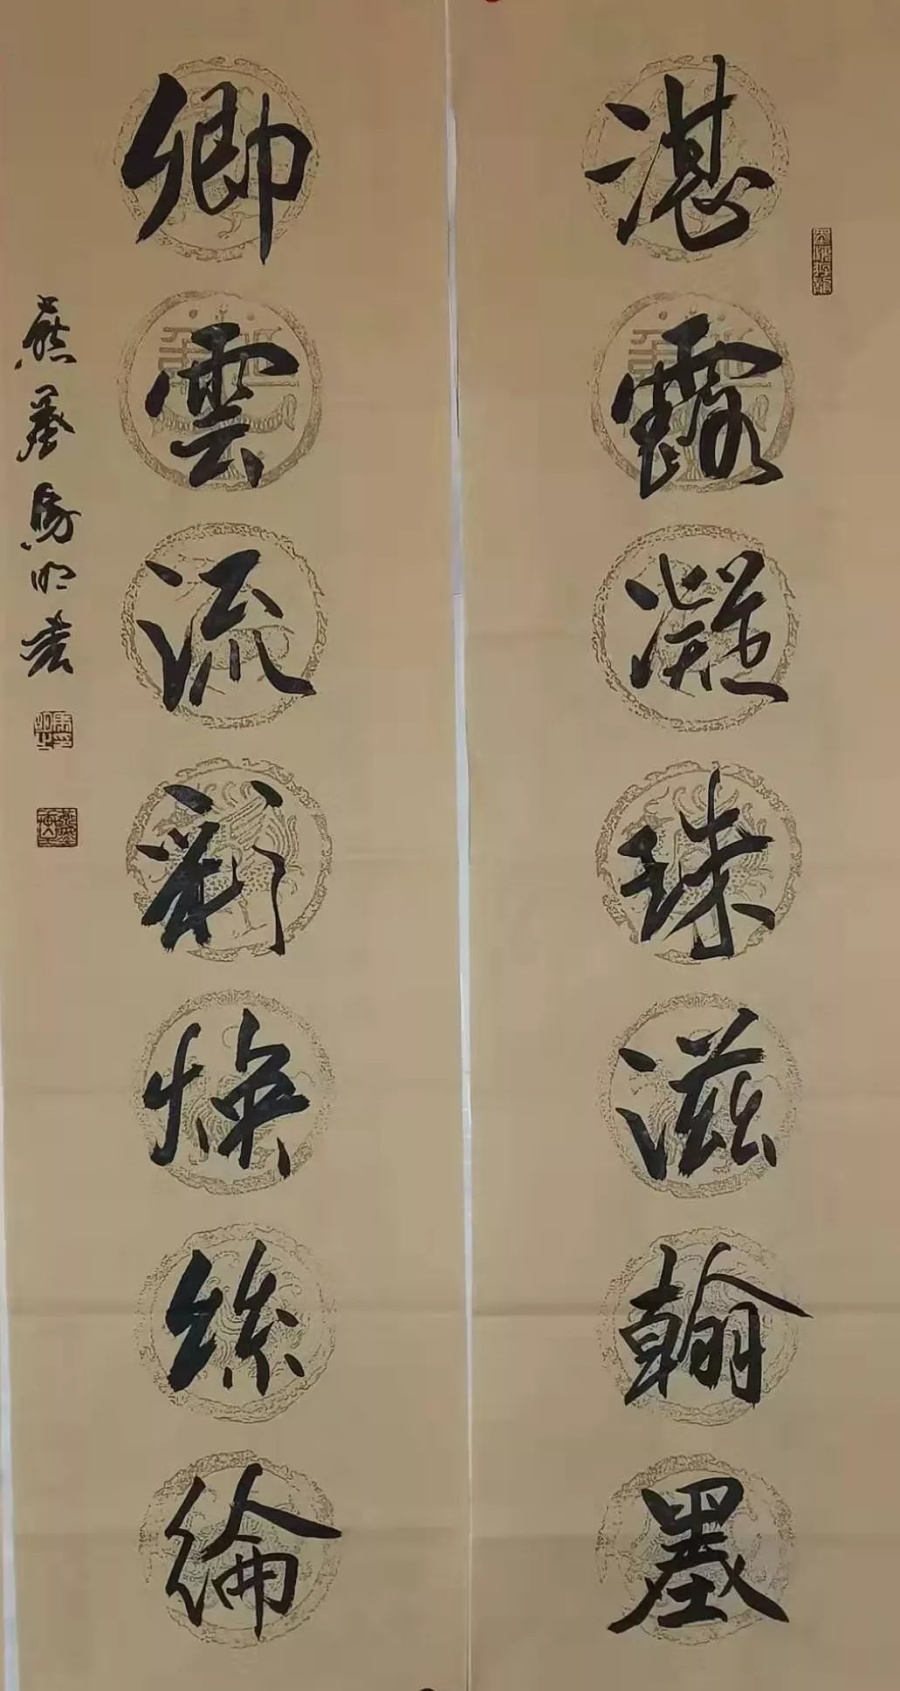 湛露凝珠滋翰墨
卿雲流彩煥絲綸
燕臺馬明書